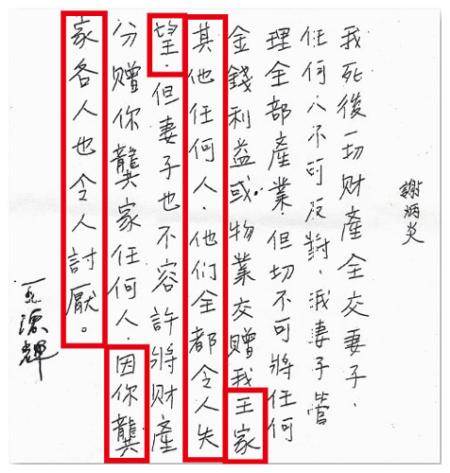 謝炳炎
我死後一切财產全交妻子.
任何人不可反對,我妻子管
理全部產業.但切不可將任何
金錢利益或物業交贈我王家
其他任何人.他们全都令人失
望.但妻子也不容許將财產
分赠你龔家任何人.因你龔
家各人也令人討厭。
輝